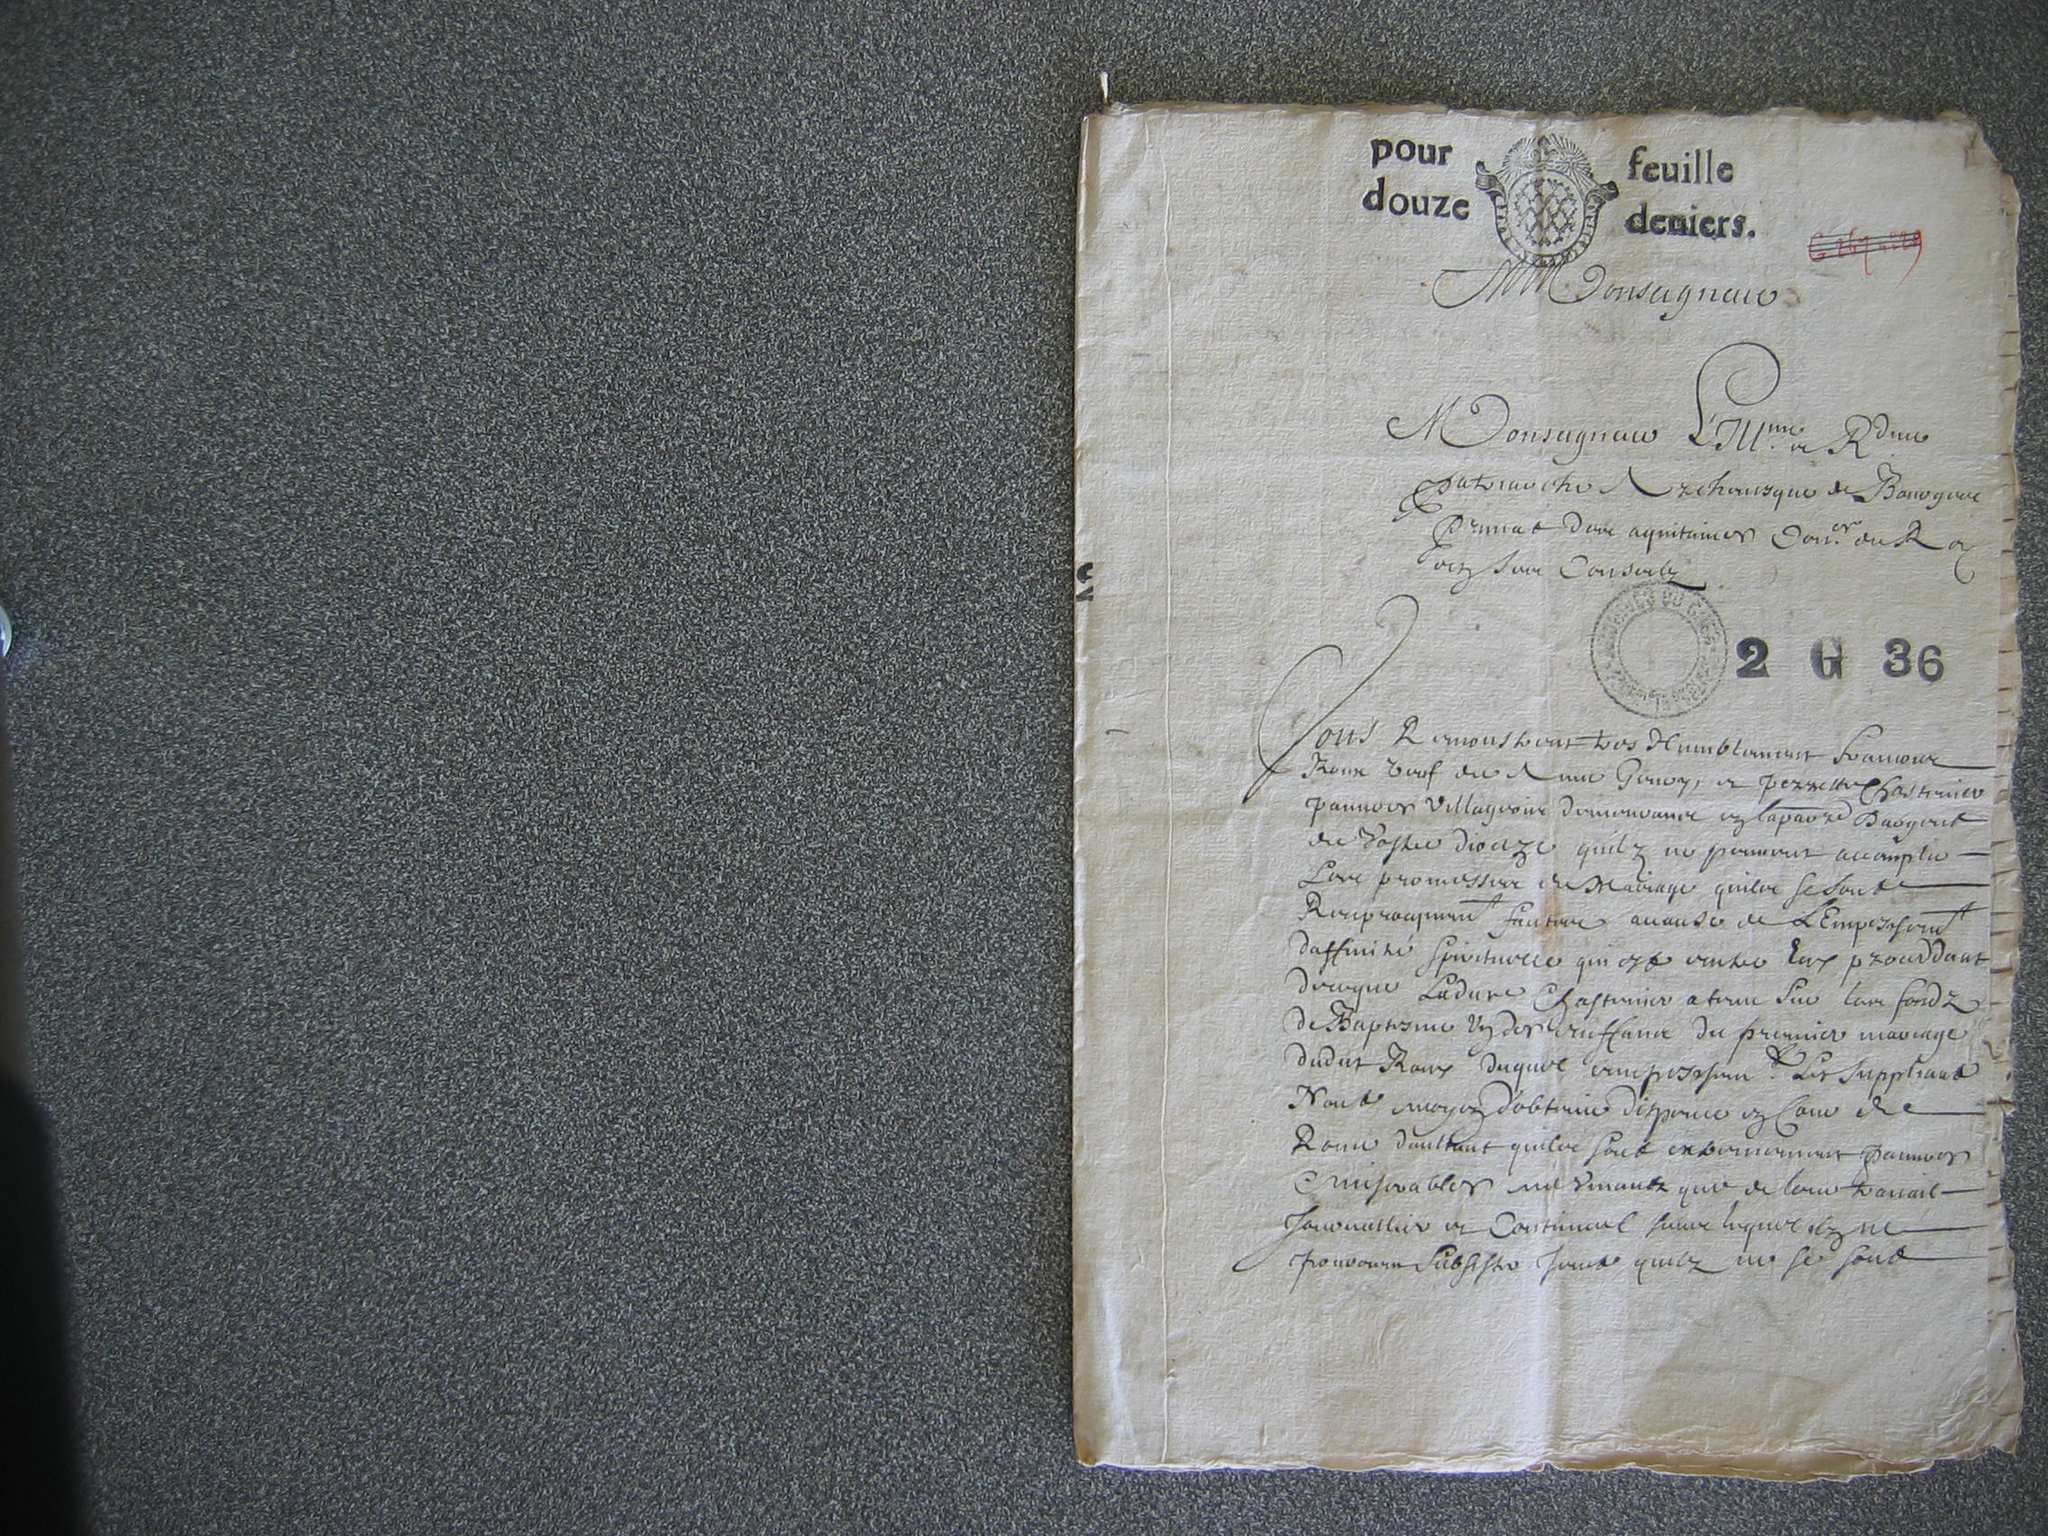 pour feuille
douze deniers.
Monseigneur
Monseigneur L'Ill.me et R.dme
patriarche Archeuesque de Bourges
primat des aquitaines Con.er du Roy
en ses Conseilz
2 G 36
Vous Remonstrent tres Humblement Francois
Roux veuf de Anne et perrette Chastenier
pauures Villageois demeurants en la parr.e
de Vostre dioceze quilz ne peuuent accomplir
Leurs promesses de Mariage quils se sont
Reciproquem.t faittes a cause de L'Empeschem.t
daffinité spirituelle qui est entre Eux proceddant
de ce que Ladite Chastenier a tenu sur les fondz
de Baptesme Un des enffans du premier mariage
dudit Roux duquel empeschem.t Les suppliants
Nont moyen d'obtenir dispence en Cour de
Rome daultant quils sont extremement pauures
miserables ne Viuants que de leur trauail
Journallier et Continuel sans lequel ilz ne
pouroient Subsister Joint quilz ne se sont